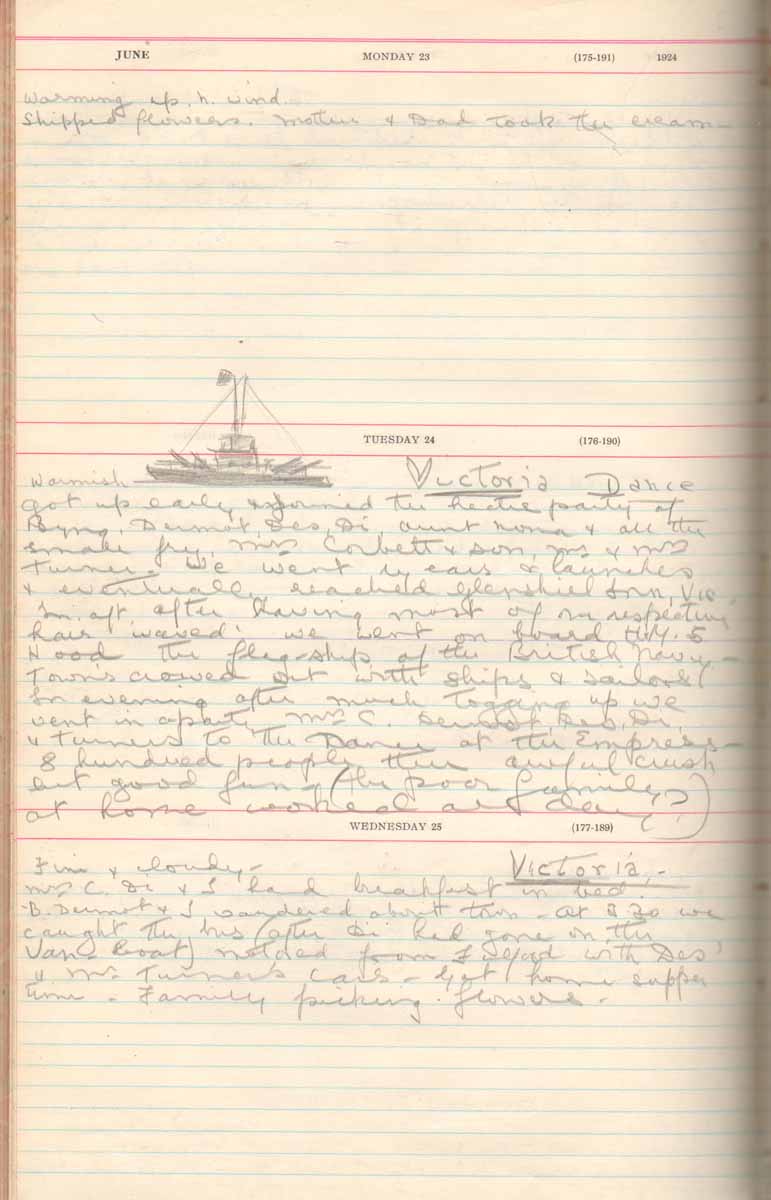 JUNE MONDAY 23 (175-191) 1924
Warming up. n. wind.
Shipped flowers. Mother & Dad took the cream—
TUESDAY 24 (176-190)
Warmish Victoria Dance
got up early & joined the hectic party of
Byng, Dermot, Des, Di, aunt nona & all the
small fry, Mrs Corbett & son, Mr & Mrs
Turner. We went by cars & launches
& eventuall reached Glenshiel Inn, Vic
In aft. after having most of our respective
hairs 'waved' we went on board H.M.S
Hood the flag-ship of the British Navy—
Towns crowed out with ships & sailors!
In evening after much togging up we
went in a party, Mrs C. Dermot, Des, Di,
& Turners to the Dance at the Empress—
8 hundred people there awful crush
but good fun— (the poor family
at home worked all day?)
WEDNESDAY 25 (177-189)
Fine & cloudy— Victoria.—
Mrs C. Di & I had breakfast in bed.
B. Dermot & I wandered about town— at 3.30 we
caught the bus (after Di had gone on the
Van. boat) motored from Fulford with Des'
& Mr Turner's cars— Got home supper
time— Family picking flowers—